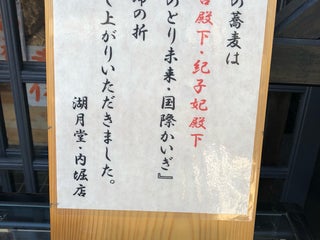 の蕎麦は
宮殿下・紀子妃殿下
のとり未来・国際かいぎ』
の折
し上がりいただきました。
湖月堂・内堀店